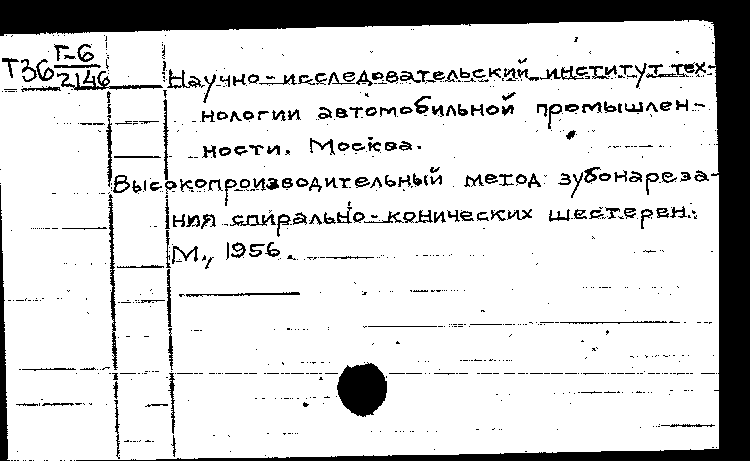 Т36 Г-6/2146
Научно-исследовательский институт тех-
нологии автомобильной промышлен-
ности. Москва.
Высокопроизводительный метод зубонареза-
ния спирально-конических шестерен.
М., 1956.